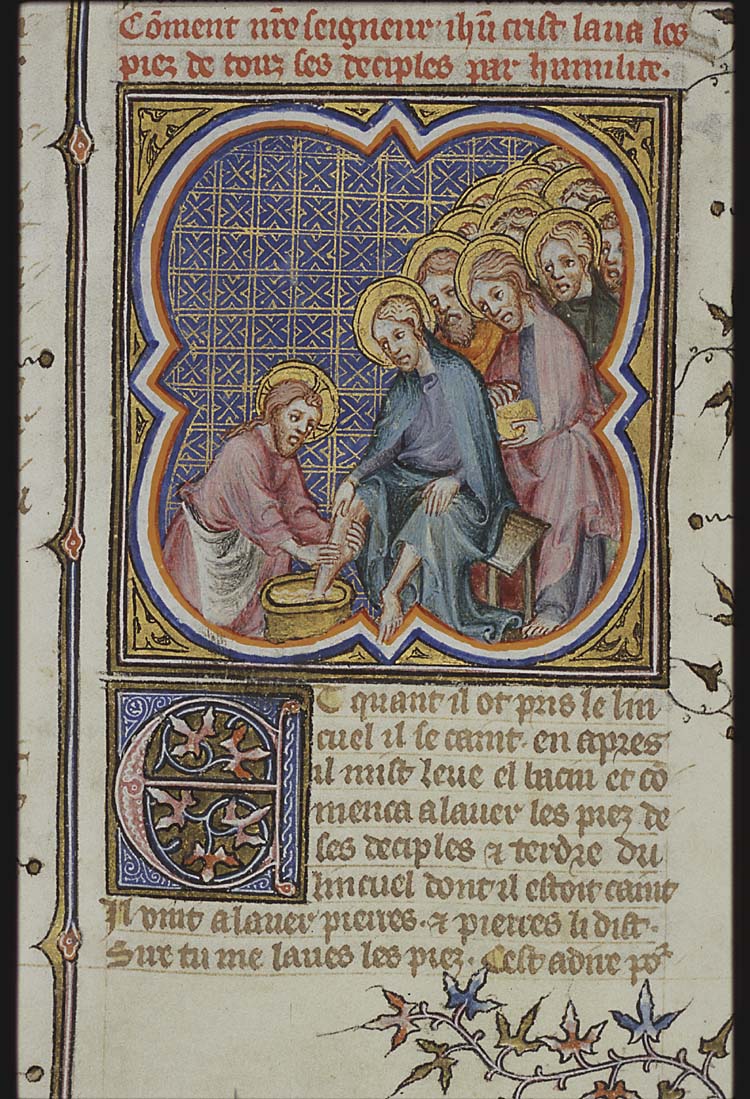 Cõment nr̃e seigneur ihũ crist laua les
piez de touz ses deciples par humilite.
Et quant il ot pris le lin
cuel il se caint. en apres
il mist leue el bacin et cõ
menca a lauer les piez de
ses deciples & terdre du
lincuel dont il estoit caint
Il vint a lauer pierres. & pierres li dist.
Sire tu me laues les piez. Cest a dire